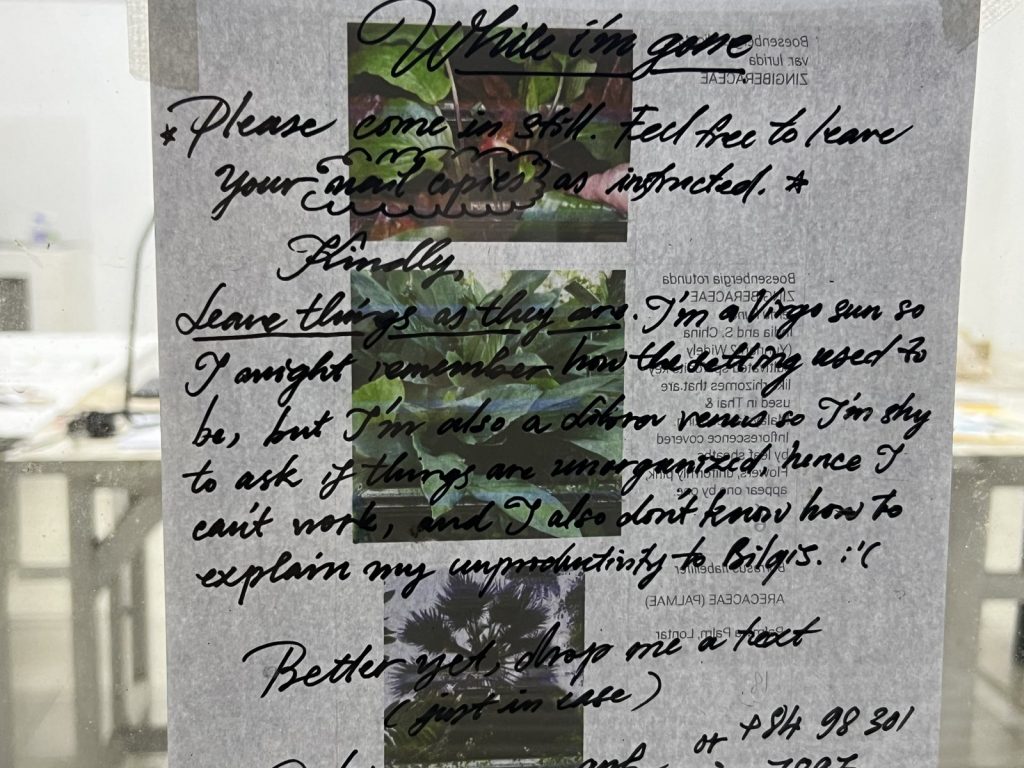 While i'm gone
* Please come in still. Feel free to leave
your mail copies as instructed. *
Kindly,
Leave things as they are. I'm a Virgo sun so
I might remember how the setting used to
be, but I'm also a libra venus so I'm shy
to ask if things are unorganized, hence I
can't work, and I also don't know how to
explain my unproductivity to Bilgis. :'(
Better yet, drop me a text
(just in case)
or +84 98 301
Boesenbergia
var. lurida
ZINGIBERACEAE
Boesenbergia rotunda
ZINGIBERACEAE
and S. China
Widely
rhizomes that are
used in Thai &
Inflorescence covered
by leaf sheaths
Flowers, uniformly pink,
appear one by one
Borassus flabellifer
ARECACEAE (PALMAE)
Palm, Lontar